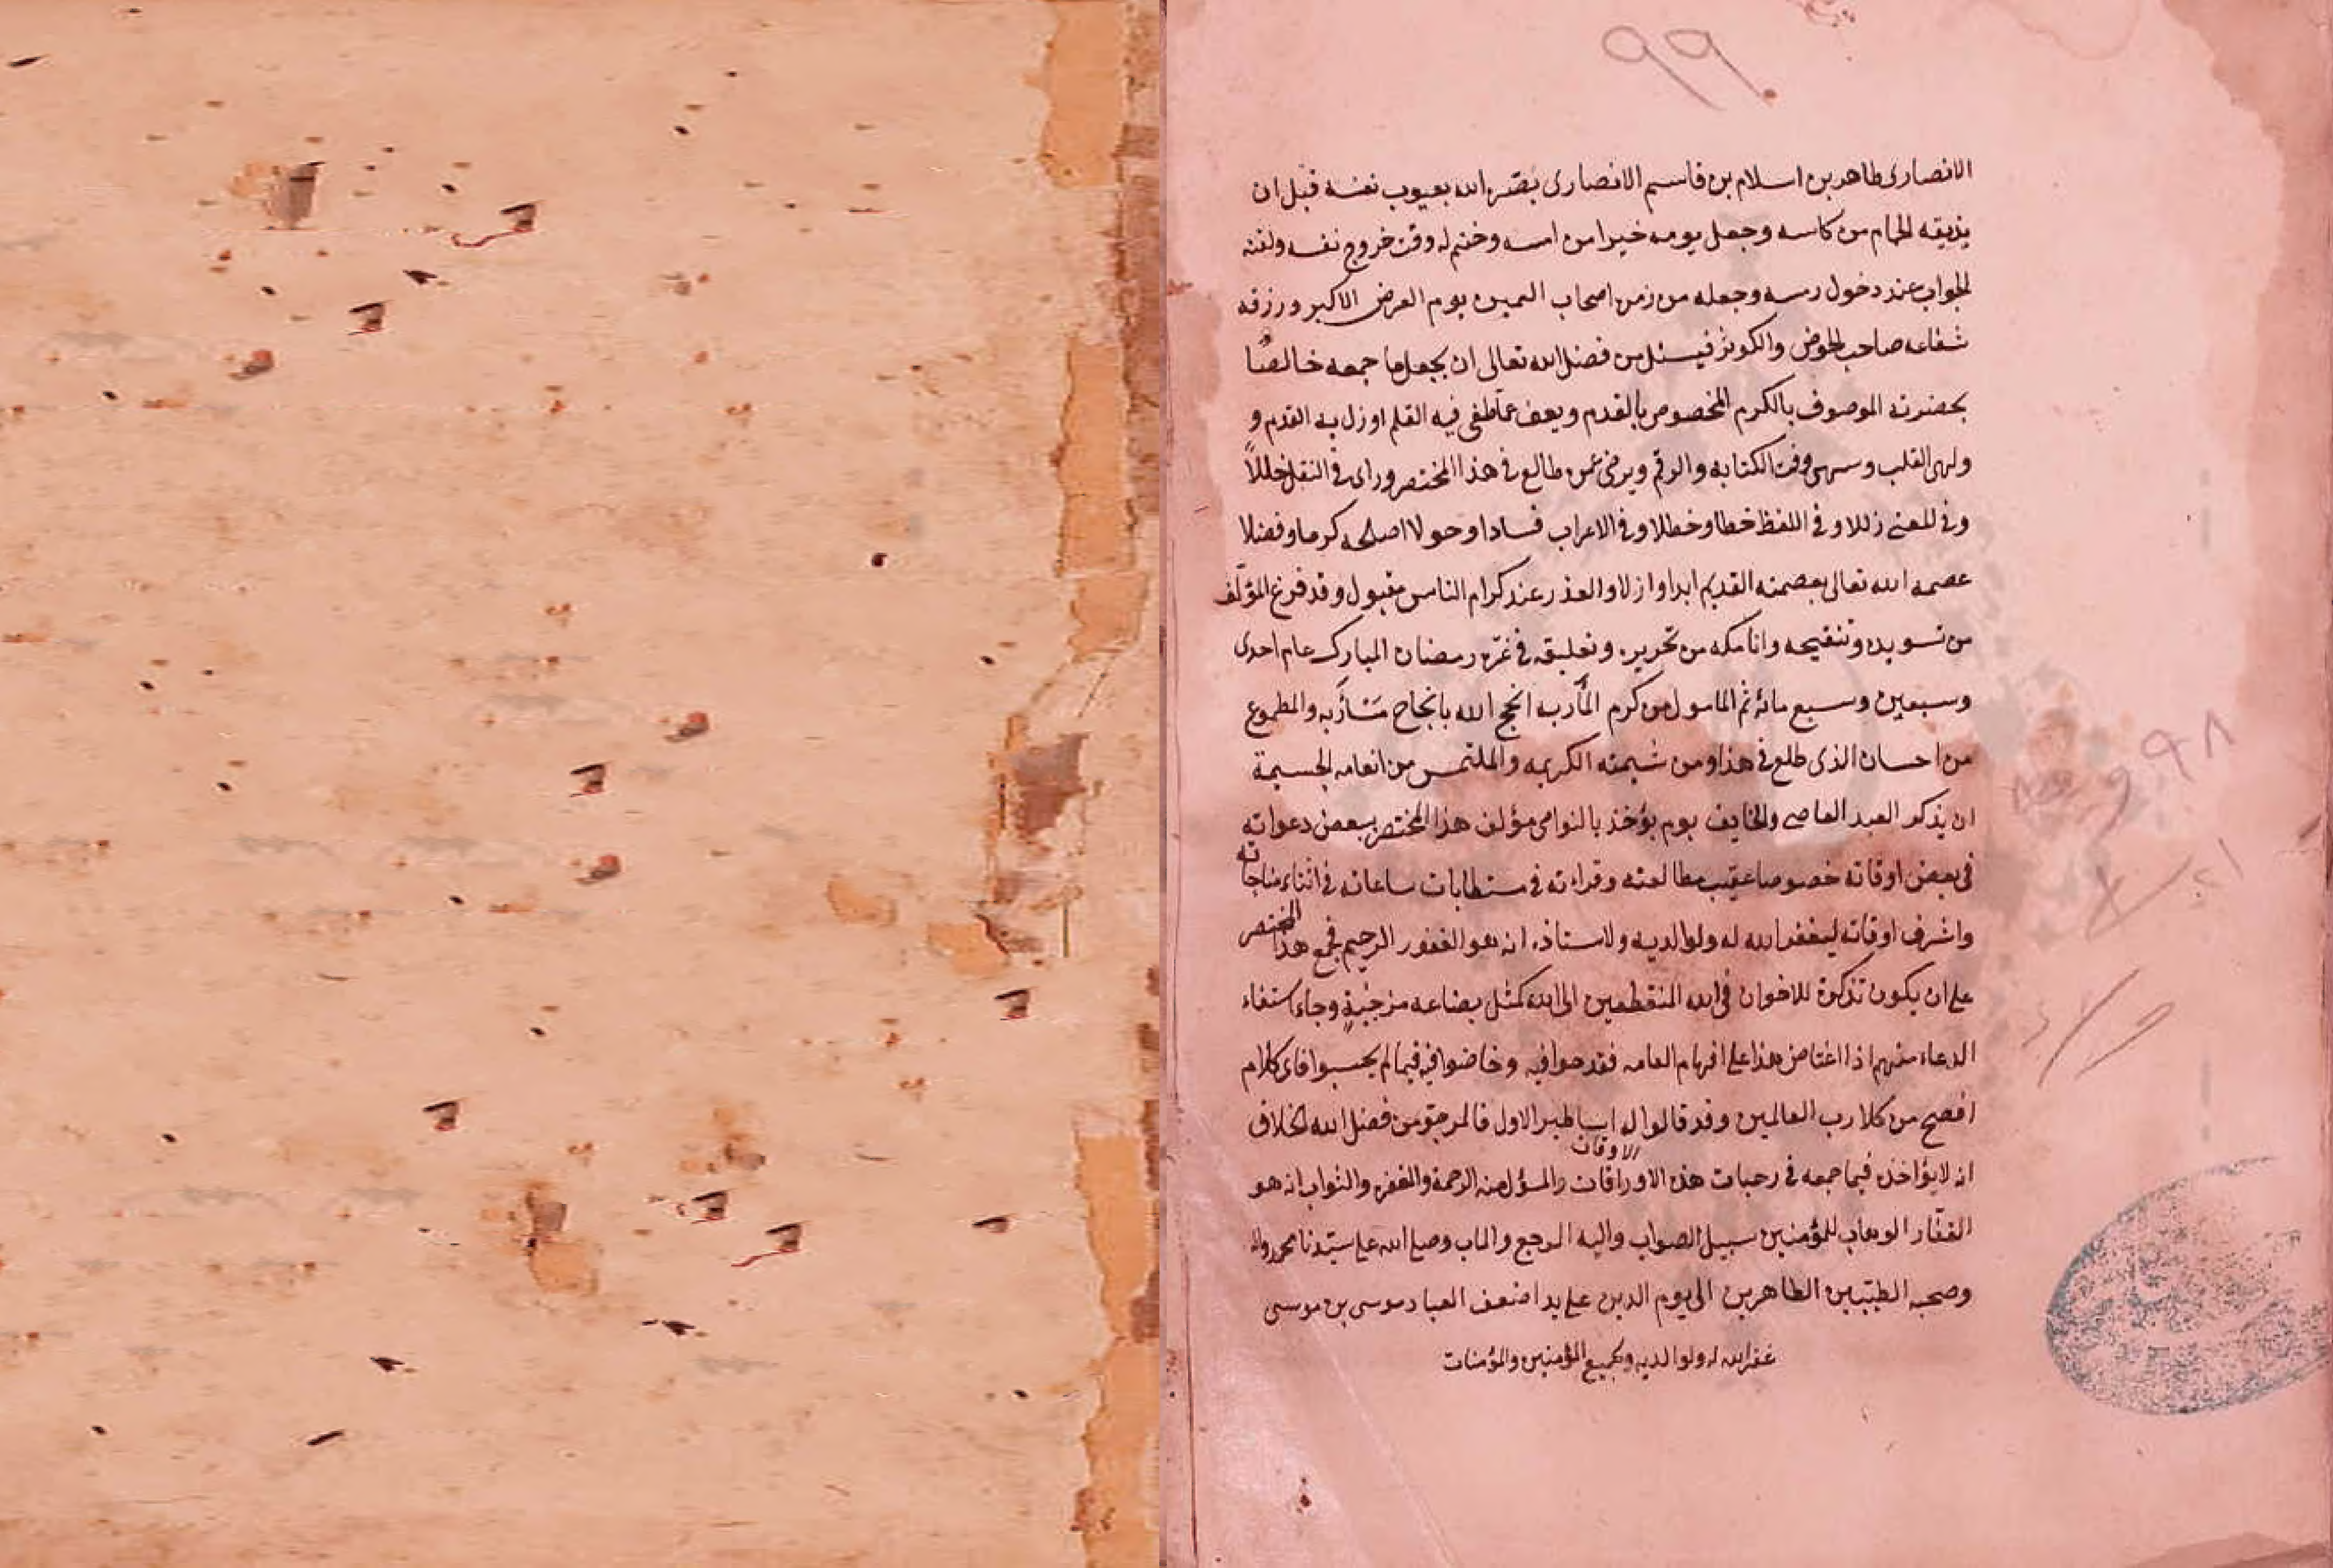 ٩٩
الانصارى طاهر بن اسلام بن قاسم الانصارى بصّره الله بعيوب نفسه قبل ان
يذيقه الحمام من كاسه وجعل يومه خيرا من امسه وختم له وقت خروج نفسه ولقنه
الجواب عند دخول رمسه وجعله من زمن اصحاب اليمين يوم العرض الاكبر ورزقه
شفاعه صاحب الحوض والكوثر فيسئل من فضل الله تعالى ان يجعل ما جمعه خالصًا
بحضرته الموصوف بالكرم المخصوص بالقدم ويعف عمّا طغى فيه القلم او زل به القدم و
ولهى القلب وسهى وقت الكتابه والرقم ويرضى عمن طالع فى هذا المختصر وراى فى النقل خللاً
وفى المعنى زللا وفى اللفظ خطا وخطلا وفى الاعراب فسادا وحولا اصلحه كرما وفضلا
عصمه الله تعالى بعصمته القديم ابدا وازلا والعذر عند كرام الناس مقبول وقد فرغ المؤلّف
من تسويده وتنقيحه وانا مكه من تحريره وتعليقه فى غرّة رمضان المبارك عام احدى
وسبعين وسبع مائه ثم المامول من كرم المأدبه انجح الله بانجاح مَأربه والمطموع
من احسان الذى طلع فى هذا ومن شيمته الكريمه والملتمس من انعامه الجسيمة
ان يذكر العبد العاصى والخايف يوم يؤخذ بالنواصى مؤلف هذا المختصر ببعض دعواته
فى بعض اوقاته خصوصا عقيب مطالعته وقراءته فى مستطابات ساعاته فى اثناء مناجاته
واشرف اوقاته ليغفر الله له ولوالديه ولاستاذه انه هو الغفور الرحيم فجمع هذا المختصر
على ان يكون تذكرة للاخوان فى الله المنقطعين الى الله كمثل بضاعه مزجٰيةٍ وجاء استفاء
الدعاء منهم اذا اغتاض هذا على افهام العامه فقد حوا فيه وخاضوا فيه فيما لم يحسبوا فاى كلام
افصح من كلا رب العالمين وقد قالوا له اساطير الاول فالمرجو من فضل الله الخلاق
الاوقات
انه لا يؤاخذه فيما جمعه فى رحبات هذه الاوراقات والمسؤل منه الرحمة والمغفره والثواب انه هو
الغفّار الوهاب للمؤمنين سبيل الصواب واليه المرجع والماب وصلى الله على سيّدنا محمد واله
وصحبه الطيّبين الطاهرين الى يوم الدين على يد اضعف العباد موسى بن موسى
غفر الله له ولوالديه ولجميع المؤمنين والمؤمنات
٩٩٨